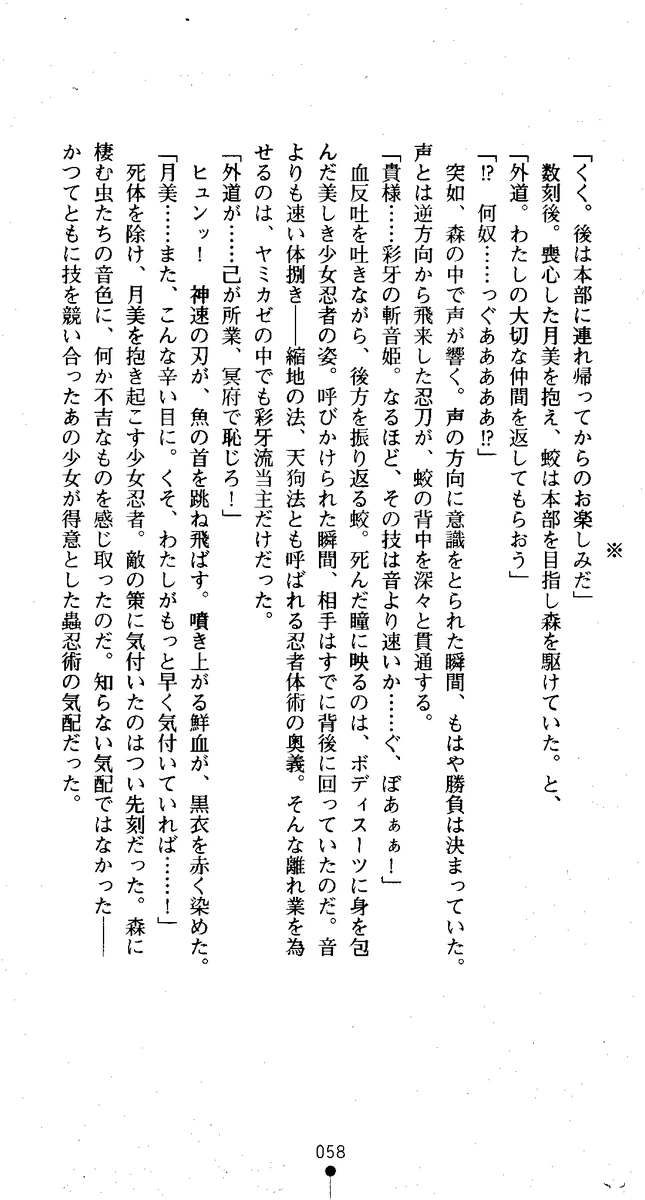 ※
「くく。後は本部に連れ帰ってからのお楽しみだ」
数刻後。喪心した月美を抱え、蛟は本部を目指し森を駆けていた。と、
「外道。わたしの大切な仲間を返してもらおう」
「!?　何奴……っぐあああああ!?」
突如、森の中で声が響く。声の方向に意識をとられた瞬間、もはや勝負は決まっていた。
声とは逆方向から飛来した忍刀が、蛟の背中を深々と貫通する。
「貴様……彩牙の斬音姫。なるほど、その技は音より速いか……ぐ、ぼあぁぁ！」
血反吐を吐きながら、後方を振り返る蛟。死んだ瞳に映るのは、ボディスーツに身を包
んだ美しき少女忍者の姿。呼びかけられた瞬間、相手はすでに背後に回っていたのだ。音
よりも速い体捌き――縮地の法、天狗法とも呼ばれる忍者体術の奥義。そんな離れ業を為
せるのは、ヤミカゼの中でも彩牙流当主だけだった。
「外道が……己が所業、冥府で恥じろ！」
ヒュンッ！　神速の刃が、魚の首を跳ね飛ばす。噴き上がる鮮血が、黒衣を赤く染めた。
「月美……また、こんな辛い目に。くそ、わたしがもっと早く気付いていれば……！」
死体を除け、月美を抱き起こす少女忍者。敵の策に気付いたのはつい先刻だった。森に
棲む虫たちの音色に、何か不吉なものを感じ取ったのだ。知らない気配ではなかった――
かつてともに技を競い合ったあの少女が得意とした蟲忍術の気配だった。
058